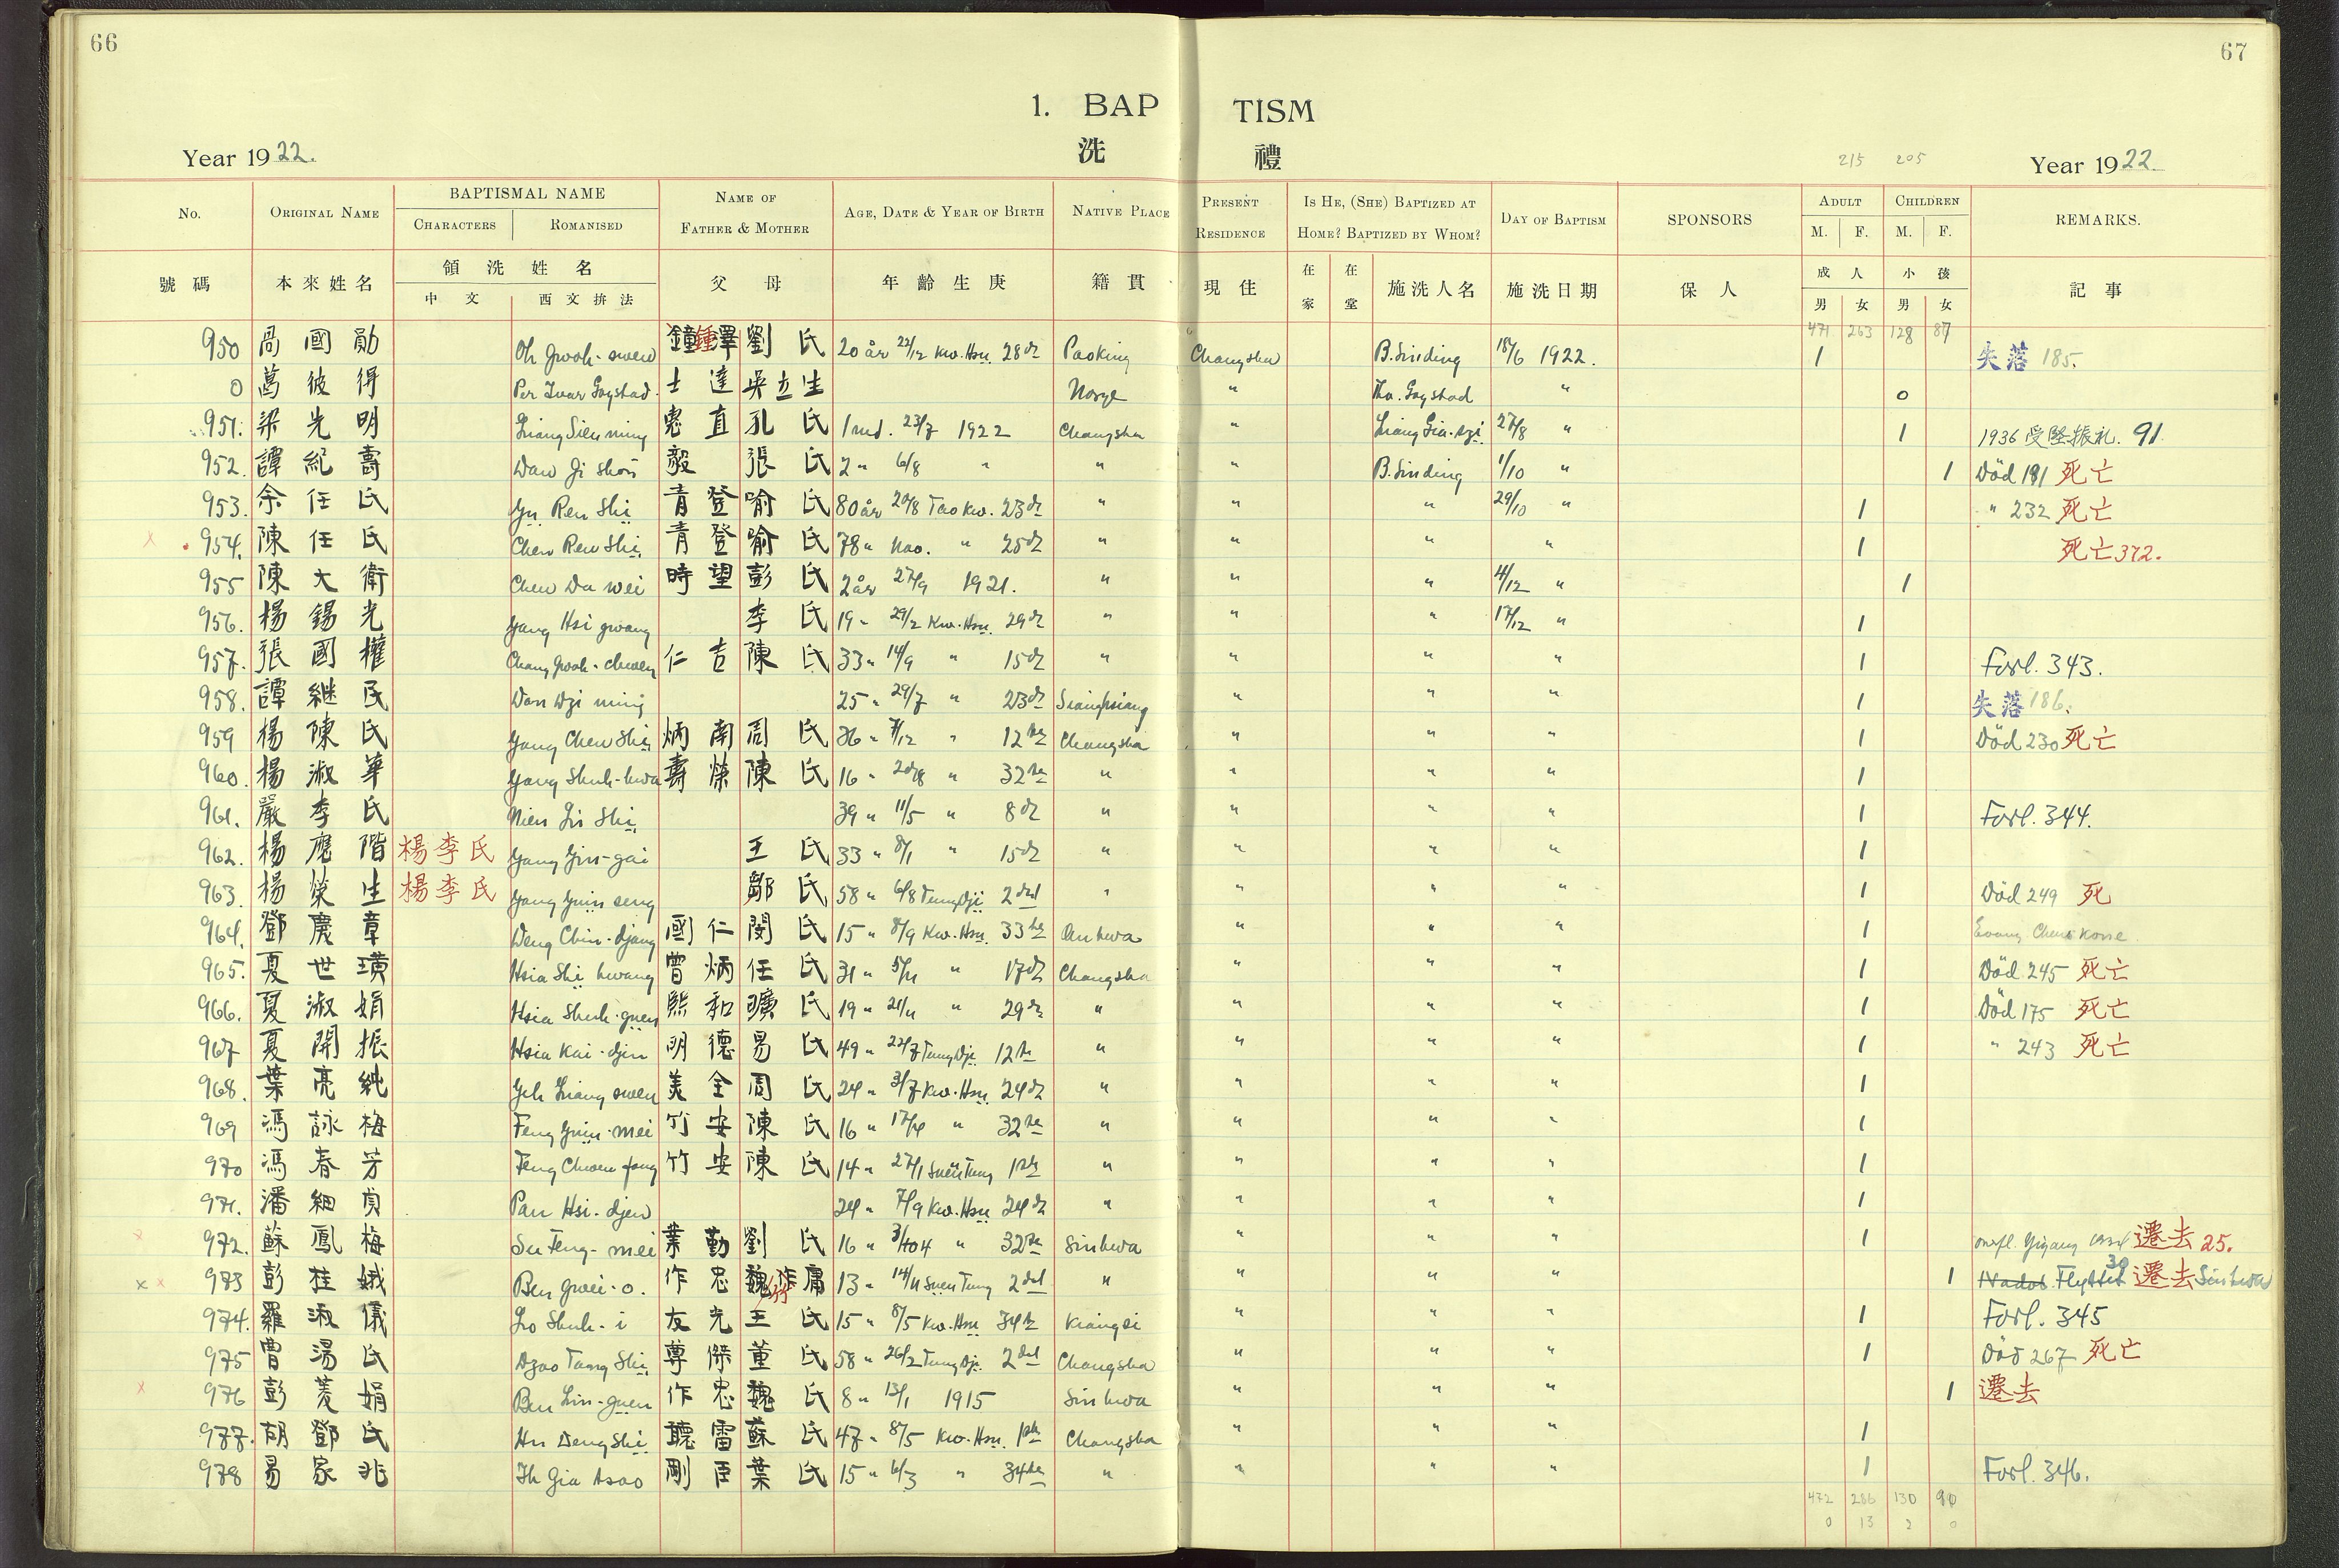 66
67
1. BAPTISM
洗 禮
Year 1922.
215 205
Year 1922
No. ORIGINAL NAME BAPTISMAL NAME NAME OF FATHER & MOTHER AGE, DATE & YEAR OF BIRTH NATIVE PLACE PRESENT RESIDENCE IS HE, (SHE) BAPTIZED AT HOME? BAPTIZED BY WHOM? DAY OF BAPTISM SPONSORS ADULT CHILDREN REMARKS.
CHARACTERS ROMANISED M. F. M. F.
號碼 本來姓名 領洗姓名 父母 年齡生庚 籍貫 現住 在家 在堂 施洗人名 施洗日期 保人 成人 小孩 記事
中文 西文拼法 男 女 男 女
471 263 128 87
950 國勛 Oh Gwoh-swen 劉氏 20 år 22/12 Kw.Hsü 28 Paoking Changsha B.Sinding 18/6 1922. 1 失落 185.
0 葛彼得 Per Ivar Gogstad 士達 吳立生 Norge " Gogstad " 0
951. 梁光明 Liang 直 孔氏 1 md. 23/7 1922 Changsha " 27/8 " 1 1936 受堅振礼. 91
952. 譚紀壽 Dan Gi Shou 毅 張氏 2 " 6/8 " " " B.Sinding 1/10 " 1 Död 181 死亡
953. 余任氏 Yü Ren Shi 青登 喻氏 80 år 20/8 Tao kw. 23 " " " 29/10 " 1 " 232 死亡
954. 陳任氏 Chen Ren Shi 青登 喻氏 78 " " 25 " " " " 1 死亡 372.
955 陳大衛 Chen Da wei 時望 彭氏 2 år 27/9 1921. " " " 4/12 " 1
956. 楊錫光 Yang Hsi gwang 李氏 19 " 29/2 Kw.Hsü 29 " " " 17/12 " 1
957. 張國權 Chang Gwoh-chwen 仁吉 陳氏 33 " 14/9 " 15 " " " " 1 Forl. 343.
958. 譚継民 Dan Dzi ming 25 " 29/7 " 23 Siangsiang " " " 1 失落 186.
959 楊陳氏 Yang Chen Shi 炳南 周氏 36 " " 12 Changsha " " " 1 Död 230 死亡
960. 楊淑華 Yang Shuh-hwa 壽榮 陳氏 16 " " 32 " " " " 1
961. 嚴李氏 Nien Li Shi 39 " 11/5 " 8 " " " " 1 Forl. 344.
962. 楊應階 楊李氏 Yang Yin-gai 王氏 33 " 8/1 " 15 " " " " 1
963. 楊榮生 楊李氏 Yang Yuin seng 鄒氏 58 " 6/8 Tung Dji 2 " " " " 1 Död 249 死
964. 鄧慶章 Deng Chin-djang 國仁 閔氏 15 " 8/9 Kw.Hsü. 33 Anhwa " " " 1 Evang. Chens kone
965. 夏世璜 Hsia Shi hwang 曾炳 任氏 31 " " 17 Changsha " " " 1 Död 245 死亡
966. 夏淑娟 Hsia Shuh-guen 熙和 曠氏 19 " " 29 " " " " 1 Död 175 死亡
967 夏開振 Hsia Kai-djin 明德 易氏 49 " 22/7 Tung Dji 12 " " " " 1 " 243 死亡
968. 葉亮純 Yeh Liang swen 美全 周氏 24 " 3/7 Kw.Hsü. 24 " " " " 1
969 馮詠梅 Feng Yuin-mei 竹安 陳氏 16 " " 32 " " " " 1
970 馮春芳 Feng Chwen fang 竹安 陳氏 14 " 27/1 Suen Tung 1 " " " " 1
971. 潘細貞 Pan Hsi-djen 24 " 7/9 Kw.Hsü 24 " " " " 1
972. 蘇鳳梅 Su Feng-mei 業勤 劉氏 16 " " 32 Sinhwa " " " 1 Yiyang 1924 遷去 25.
973 彭桂娥 Ben Gwei-o. 作忠 魏 13 " 14/11 Suen Tung 2 " " " " 1 Flyttet 30 遷去 Sinhwa
974. 羅淑儀 Lo Shuh-i 友光 王氏 15 " 8/5 Kw.Hsü 34 Kiangsi " " " 1 Forl. 345
975 曹湯氏 Dzao Tang Shi 尊傑 董氏 58 " 26/2 Tung Dji. 2 Changsha " " " 1 Död 267 死亡
976 彭菱娟 Ben Lin-guen 作忠 魏氏 8 " 13/1 1915 Sinhwa " " " 1 遷去
977. 胡鄧氏 Hu Deng Shi 聽雷 蘇氏 47 " 8/5 Kw.Hsü. 1 Changsha " " " 1
978 易家兆 Ih Gia tsao 剛臣 葉氏 15 " 6/3 " 34 " " " " 1 Forl. 346.
472 286 130 90
0 13 2 0